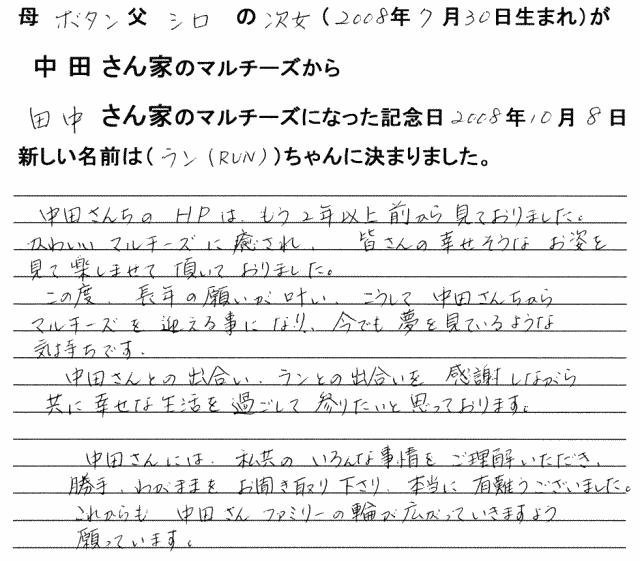 母 ボタン 父 シロ の 次女 (2008年7月30日生まれ)が
中田さん家のマルチーズから
田中 さん家のマルチーズになった記念日2008年10月8日
新しい名前は(ラン(RUN))ちゃんに決まりました。
中田さんちの HPは、もう2年以上前から見ておりました。
かわいい マルチーズに癒され、 皆さんの幸せそうな お姿を
見て楽しませて頂いておりました。
この度、長年の願いが叶い、こうして 中田さんちから
マルチーズを迎える事になり、今でも夢を見ているような
気持ちです。
中田さんとの出合い、ランとの出合いを 感謝しながら
共に幸せな生活を過ごして参りたいと思っております。
中田さんには、私共の いろんな事情をご理解いただき、
勝手、わがままを お聞き取り下さり、本当に有難うございました。
これからも 中田さん ファミリーの輪が広がっていきますよう
願っています。